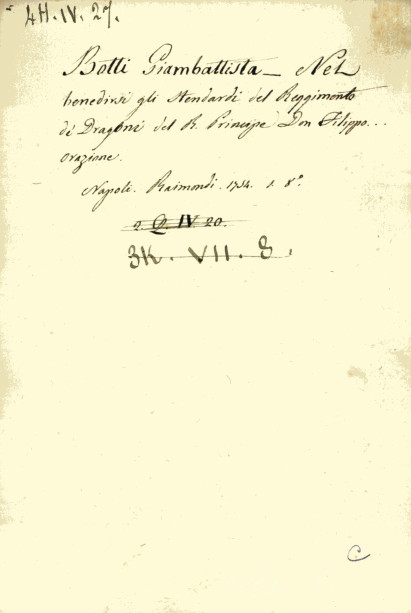 4H.IV.27.
Botti Giambattista — Nel
benedirsi gli Stendardi del Reggimento
de' Dragoni del R. Principe Don Filippo...
orazione.
Napoli. Raimondi. 1754. 1. 8°.
2. Q. IV 20.
3K. VII. 8.
C